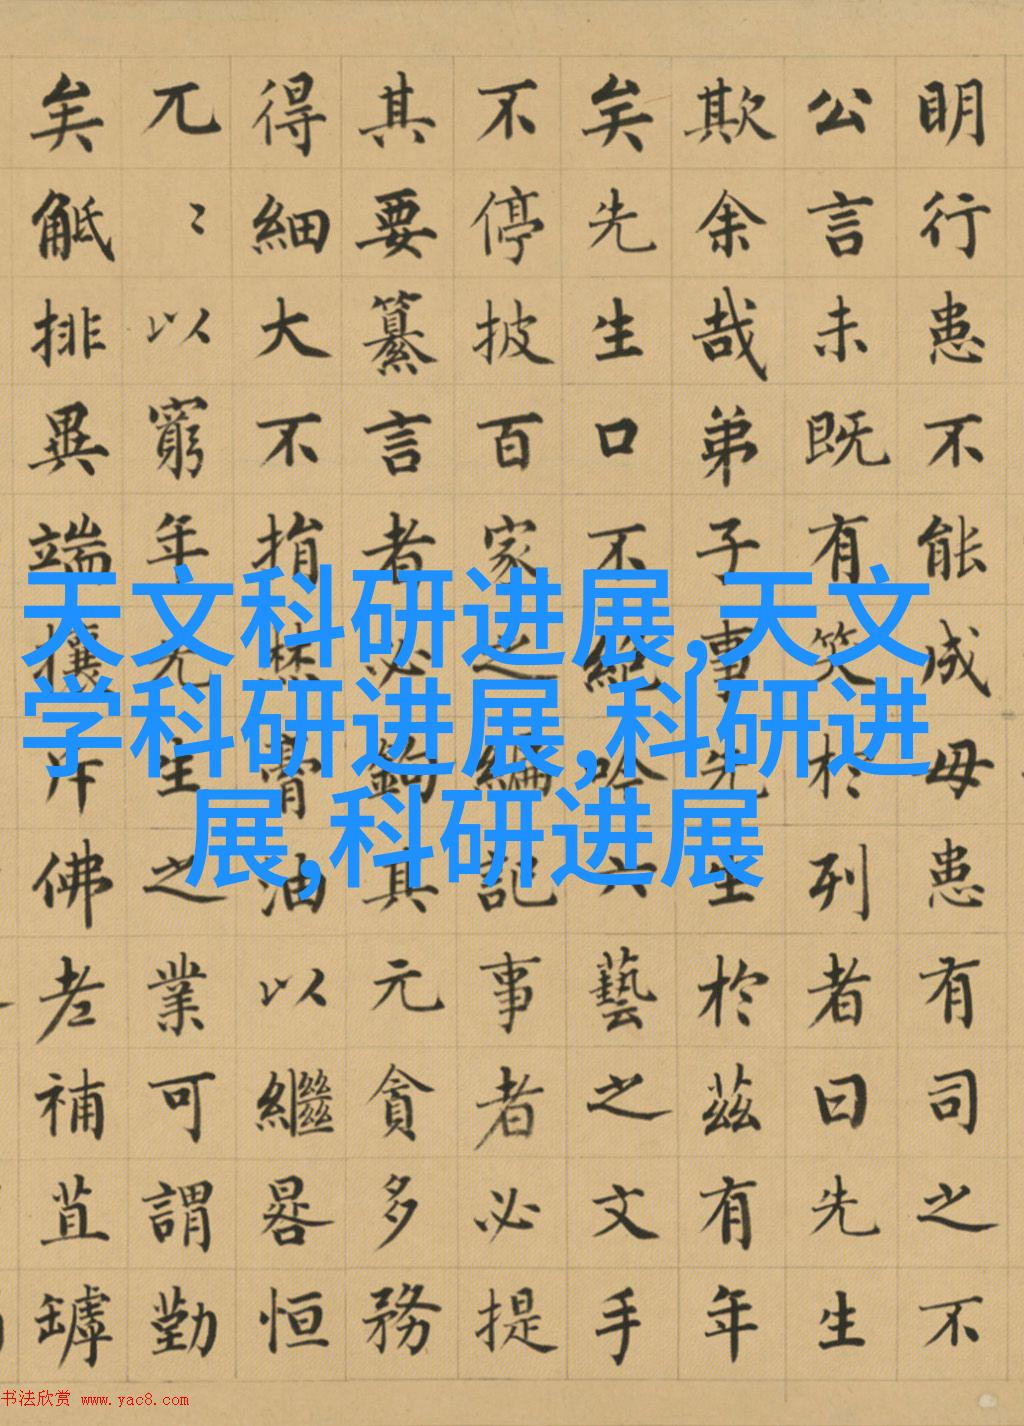 明行患不能成毋患有司之不
公言未既有笑於列者曰先生
欺余哉弟子事先生於茲有年
矣先生口不絕吟六藝之文手
不停披百家之編記事者必提
其要纂言者必鉤其元貪多務
得細大不捐焚膏油以繼晷恒
兀〻以窮年先生之業可謂勤
矣觝排異端攘斥佛老補苴罅
天文科研进展,天文
学科研进展,科研进
展,科研进展
书法欣赏 www.yac8.com